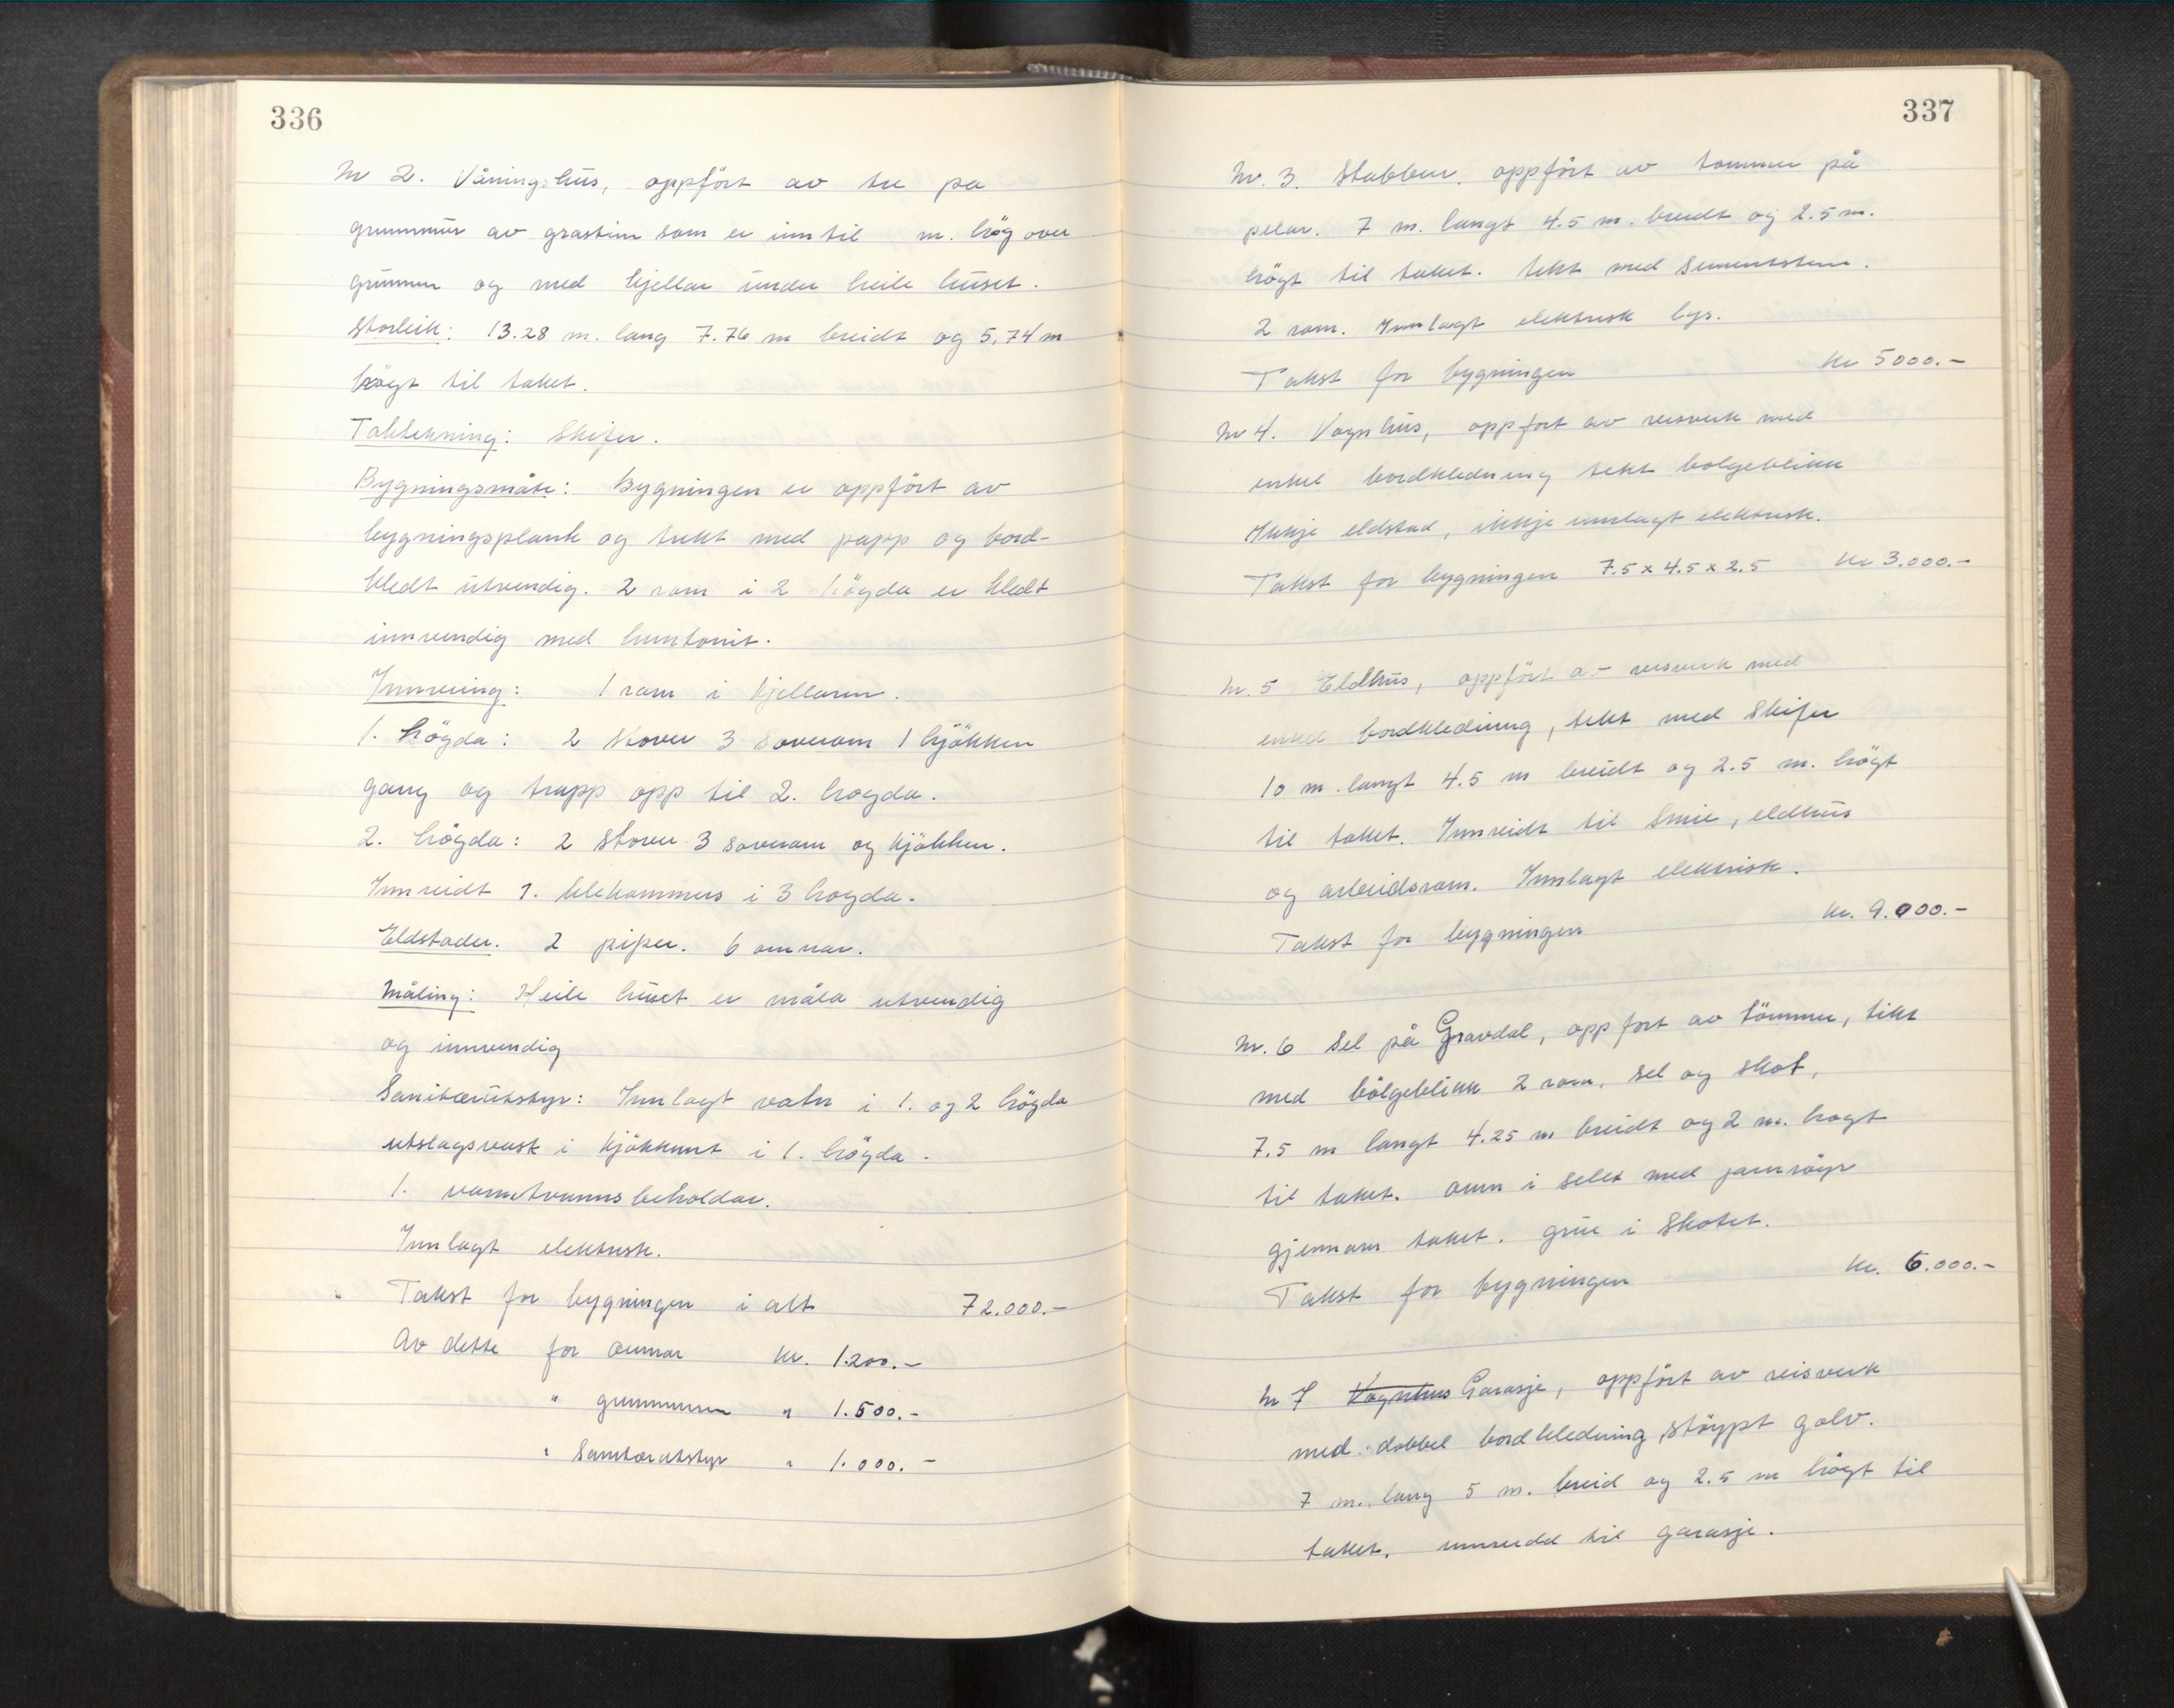 336
Nr 2. Våningshus, oppfört av tre på
grunnmur av gråstein som er inntil m. hög over
grunnen og med kjellar under heile huset.
Storleik: 13.28 m. lang 7.76 m breidt og 5,74 m
högt til taket.
Taktekning: Skifer.
Bygningsmåte: Bygningen er oppfört av
bygningsplank og trekt med papp og bord-
kledt utvendig. 2 rom i 2 högda er kledt
innvendig med huntonit.
Innreiing: 1 rom i kjellaren.
1. högda: 2 stover 3 soverom 1 kjökken
gang og trapp opp til 2. hogda.
2. högda: 2 stover 3 soverom og kjökken.
Innreidt 1. klekammers i 3 hogda.
Eldstader. 2 piper. 6 omnar.
Måling: Heile huset er måla utvendig
og innvendig
Sanitærutstyr: Innlagt vatn i 1. og 2 högda
utslagsvask i kjökkenet i 1. högda.
1. varmtvannsbeholdar.
Innlagt elektrisk.
" Takst for bygningen i alt 72.000.-
Av dette for omnar kr. 1.200.-
" grunnmuren " 1.500.-
" Sanitærutstyr " 1.000.-
337
Nr. 3. Stabbur. oppfört av tommer på
pelar. 7 m. langt 4.5 m. breidt og 2.5 m.
högt til taket. tekt med Sementstein.
2 rom. Innlagt elektrisk lys.
Takst for bygningen kr 5000.-
Nr 4. Vognhus, oppfort av reisverk med
enkel bordkledning tekt bolgeblikk
Ikkje eldstad, ikkje innlagt elektrisk.
Takst for bygningen 7.5 x 4.5 x 2.5 kr 3.000.-
Nr. 5 Eldhus, oppfört av reisverk med
enkel bordkledning, tekt med Skifer
10 m. langt 4.5 m breidt og 2.5 m. högt
til taket. Innreidt til Smie, eldhus
og arbeidsrom. Innlagt elektrisk.
Takst for bygningen kr. 9.000.-
Nr. 6 Sel på Gravdal, oppfort av tömmer, tekt
med bölgeblikk 2 rom, sel og skot,
7.5 m langt 4.25 m breidt og 2 m. hogt
til taket. omn i selet med jarnröyr
gjennom taket. grue i Skotet.
Takst for bygningen kr. 6.000.-
Nr 7 Vognhus Garasje, oppfört av reisverk
med dobbel bordkledning, stöypt golv.
7 m. lang 5 m. breid og 2.5 m högt til
taket. innreidd til garasje.